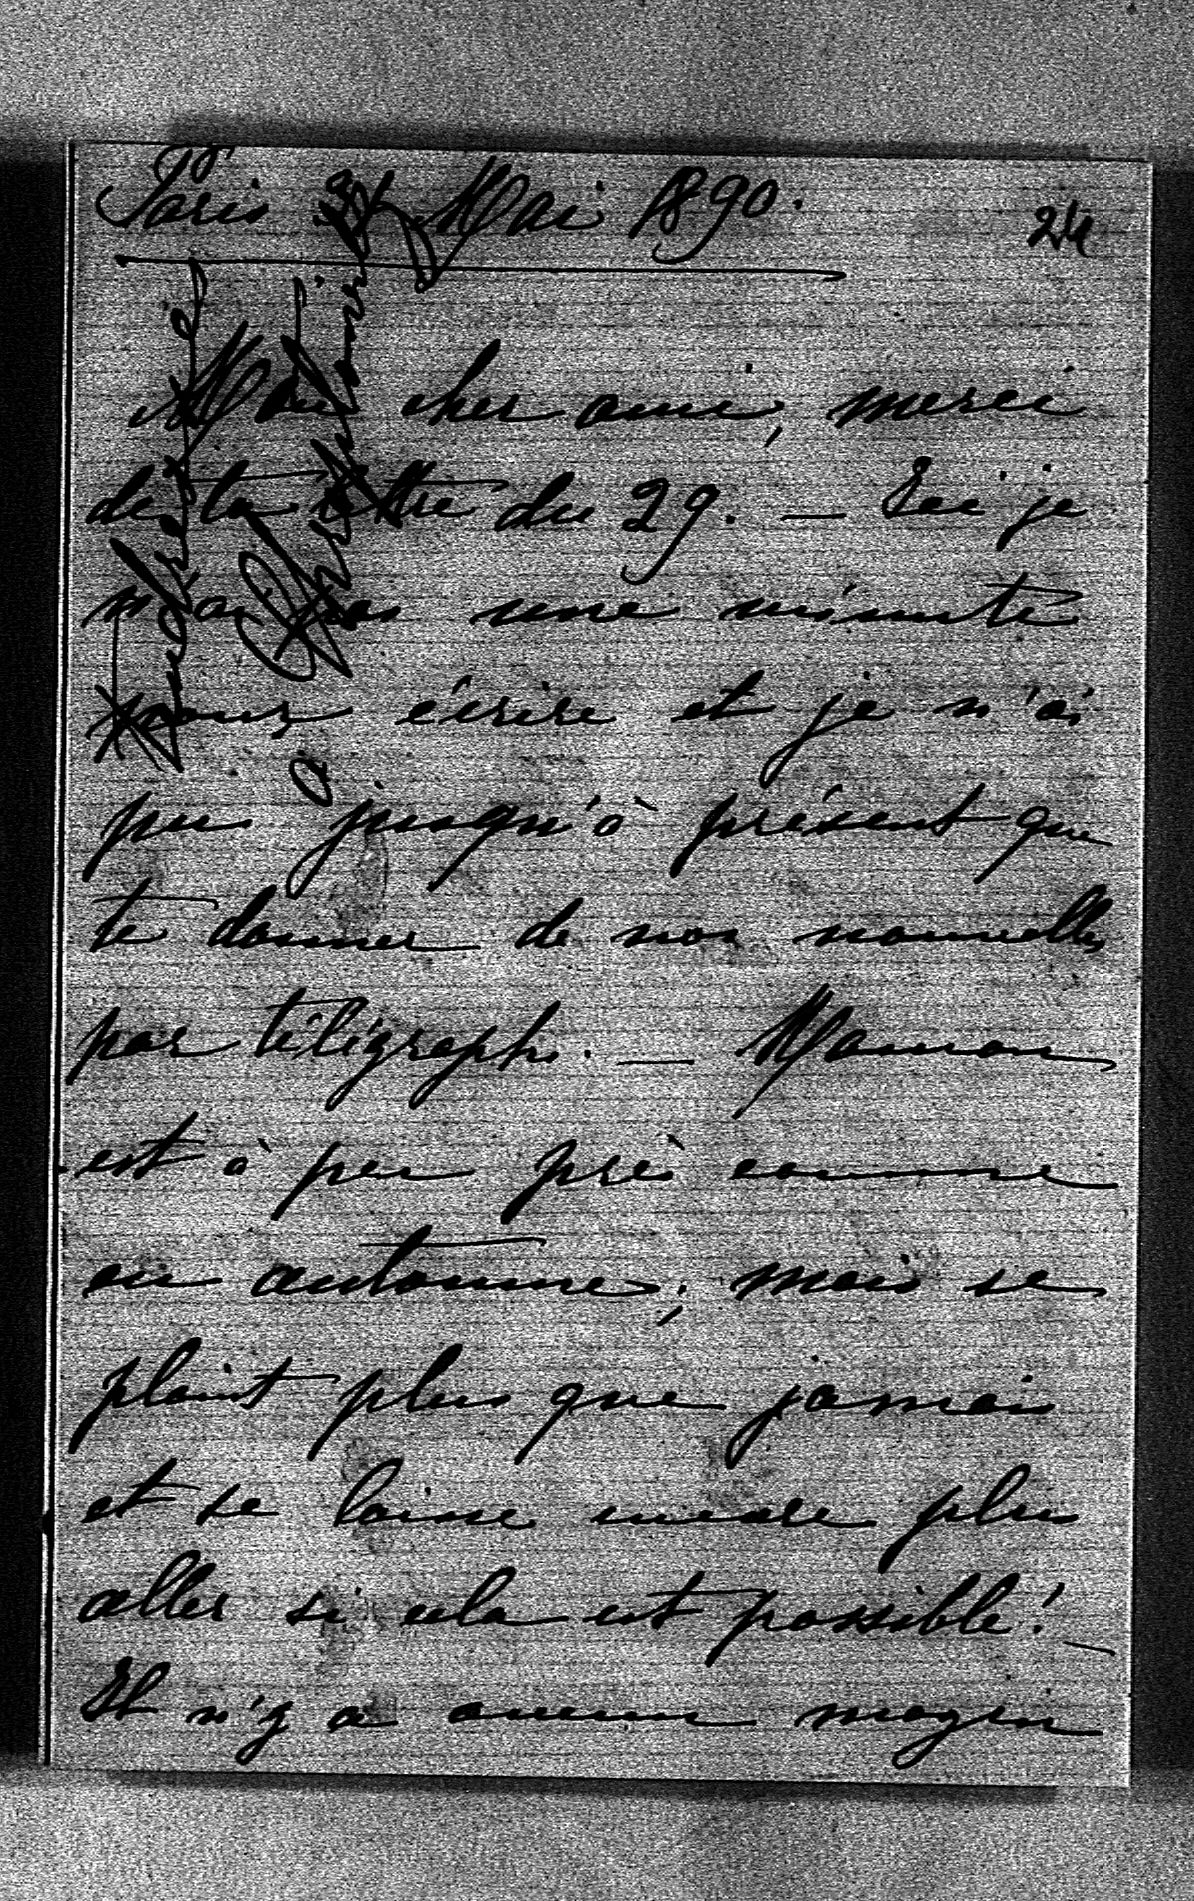 Paris Mai 1890.
24
Mon cher ami, merci
de ta lettre du 29. — Ici je
n'ai pas une minute
pour écrire et je n'ai
pu jusqu'à présent que
te donner de nos nouvelles
par télégraphe. — Maman
est à peu près comme
en automne; mais se
plaint plus que jamais
et se laisse encore plus
aller si cela est possible! —
Il n'y a aucun moyen